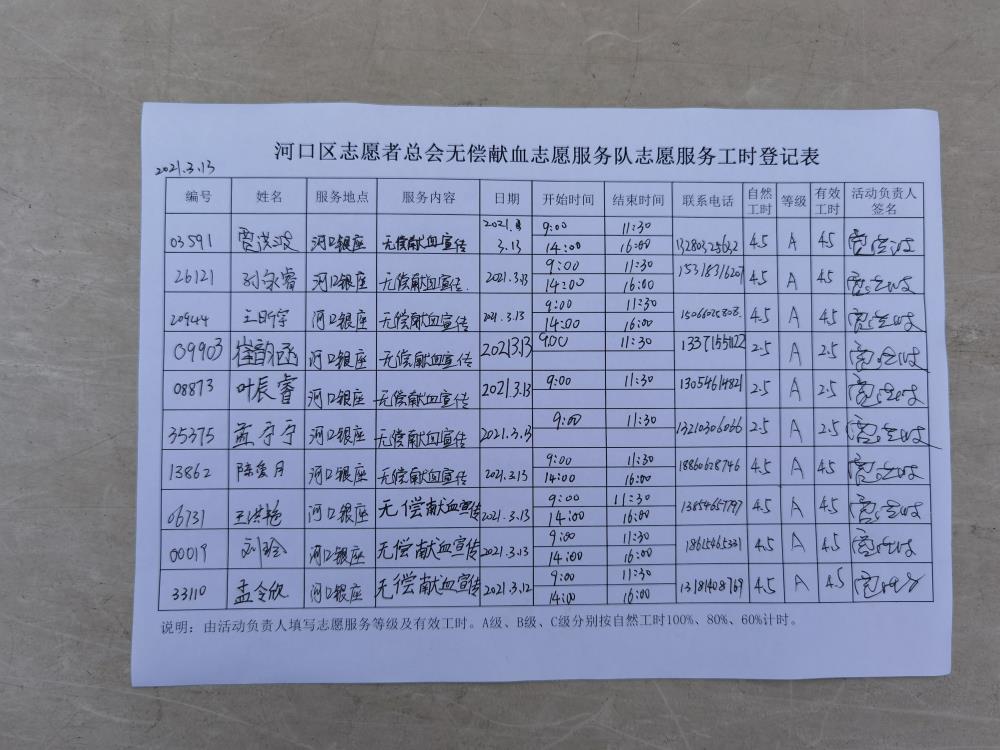 河口区志愿者总会无偿献血志愿服务队志愿服务工时登记表
2021.3.13
编号 姓名 服务地点 服务内容 日期 开始时间 结束时间 联系电话 自然工时 等级 有效工时 活动负责人签名
03591 河口银座 无偿献血宣传 2021.3.13 9:00 11:30 14:00 16:00 4.5 A 4.5
26121 孙家睿 河口银座 无偿献血宣传. 2021.3.13 9:00 11:30 14:00 16:00 15318316207 4.5 A 4.5
20944 王昕宇 河口银座 无偿献血宣传 2021.3.13 9:00 11:30 14:00 16:00 4.5 A 4.5
09903 崔韵涵 河口银座 无偿献血宣传 2021 3.13 9:00 11:30 2.5 A 2.5
08873 叶辰睿 河口银座 无偿献血宣传 2021.3.13 9:00 11:30 13054614821 2.5 A 2.5
35375 孟宁宁 河口银座 无偿献血宣传 2021.3.13 9:00 11:30 13210306066 2.5 A 2.5
13862 陈爱月 河口银座 无偿献血宣传 2021.3.13 9:00 11:30 14:00 16:00 18860628746 4.5 A 4.5
06731 王洪艳 河口银座 无偿献血宣传 2021.3.13 9:00 11:30 14:00 16:00 13854657797 4.5 A 4.5
00019 刘玲 河口银座 无偿献血宣传 2021.3.13 9:00 11:30 14:00 16:00 18615465331 4.5 A 4.5
33110 孟令欣 河口银座 无偿献血宣传 2021.3.12 9:00 11:30 14:00 16:00 13181408769 4.5 A 4.5
说明：由活动负责人填写志愿服务等级及有效工时。A级、B级、C级分别按自然工时100%、80%、60%计时。